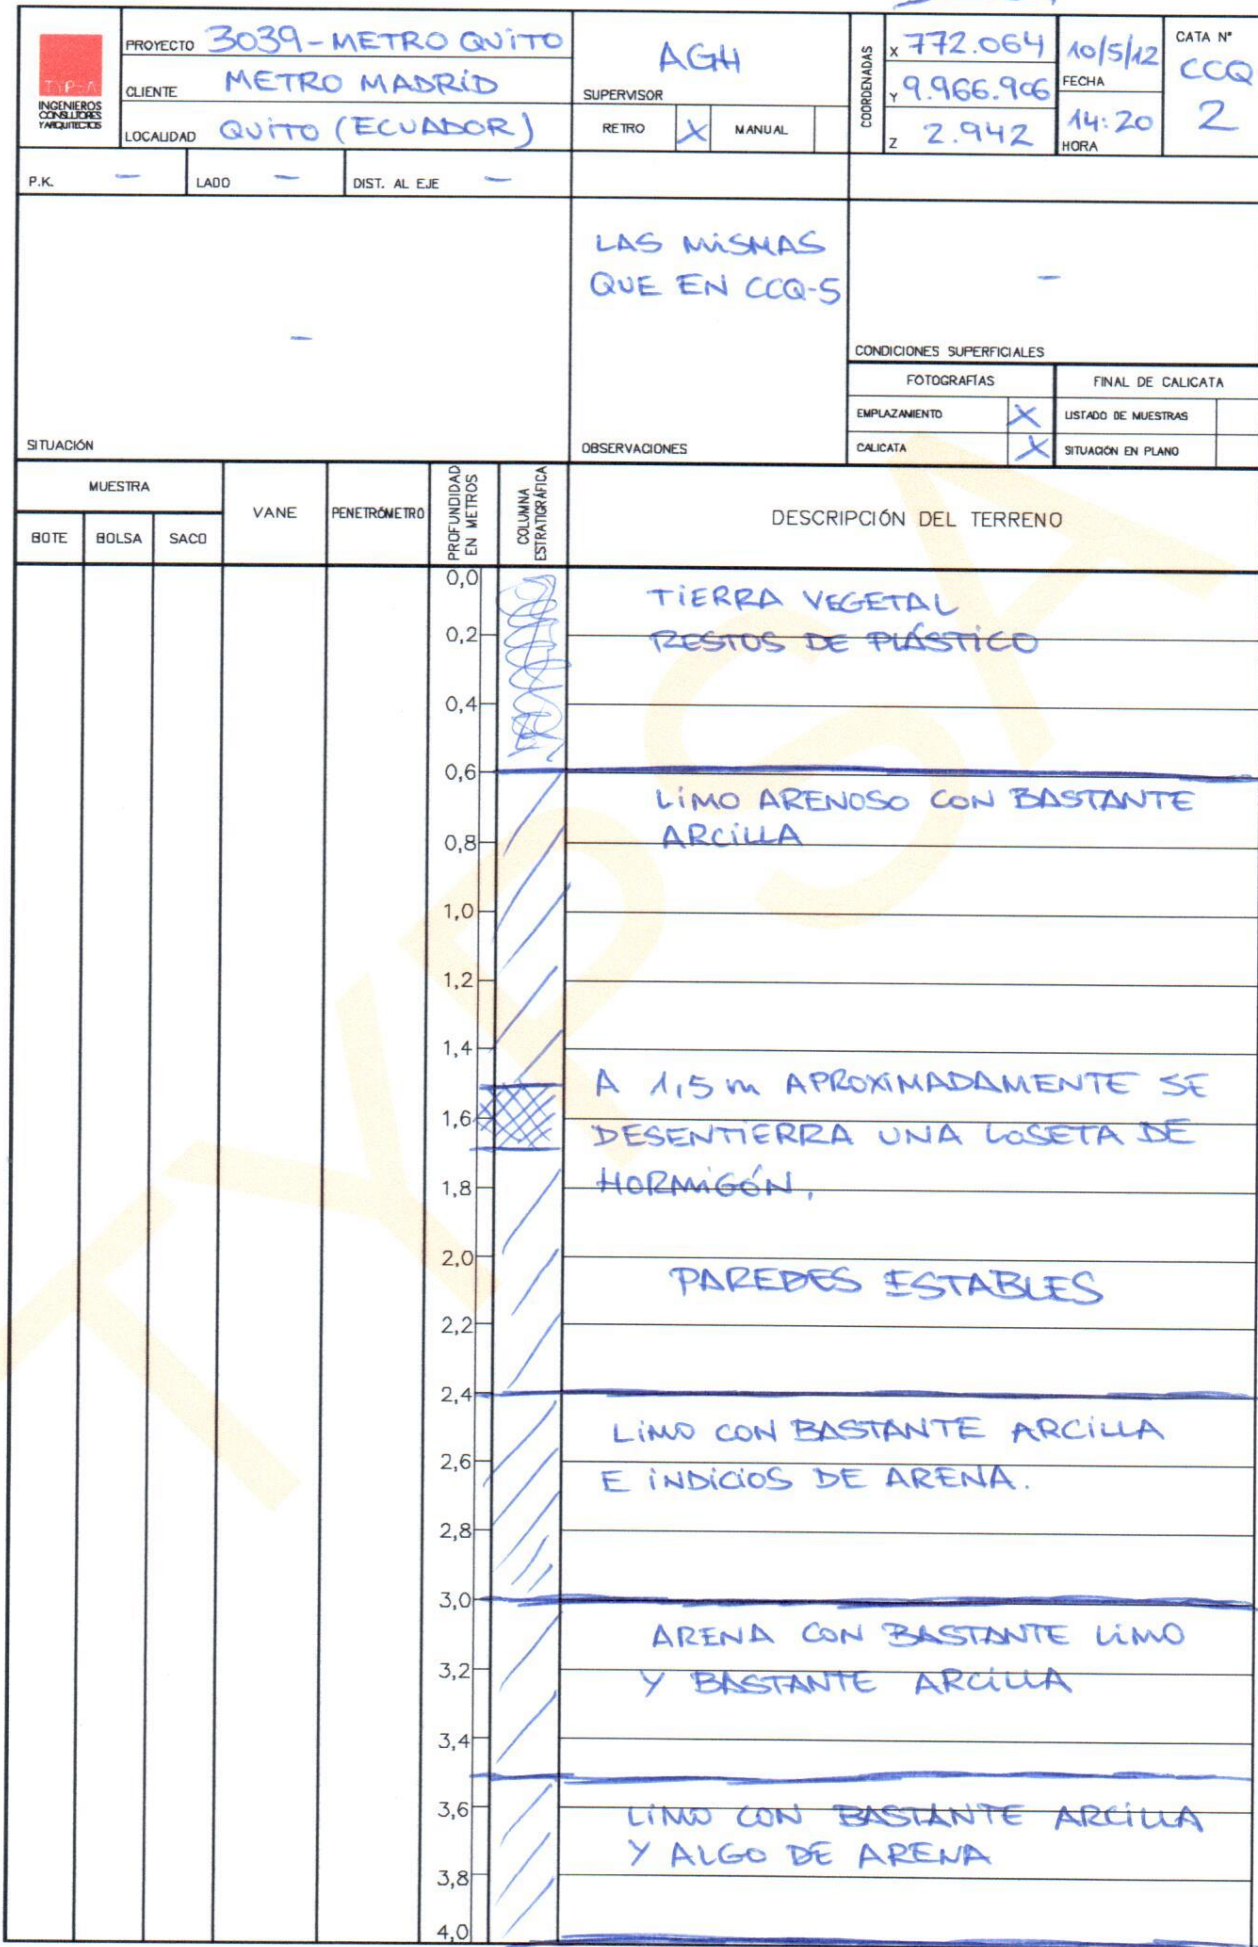 TYPSA
INGENIEROS
CONSULTORES
Y ARQUITECTOS
PROYECTO 3039-METRO QUITO
CLIENTE METRO MADRID
LOCALIDAD QUITO (ECUADOR)
AGH
SUPERVISOR
RETRO X MANUAL
COORDENADAS
X 772.064
Y 9.966.906
Z 2.942
10/5/12
FECHA
14:20
HORA
CATA N°
CCQ
2
P.K. - LADO - DIST. AL EJE -
-
SITUACIÓN
LAS MISMAS
QUE EN CCQ-5
OBSERVACIONES
-
CONDICIONES SUPERFICIALES
FOTOGRAFIAS FINAL DE CALICATA
EMPLAZAMIENTO X LISTADO DE MUESTRAS
CALICATA X SITUACIÓN EN PLANO
MUESTRA
BOTE BOLSA SACO
VANE
PENETRÓMETRO
PROFUNDIDAD
EN METROS
COLUMNA
ESTRATIGRÁFICA
DESCRIPCIÓN DEL TERRENO
0,0
TIERRA VEGETAL
0,2 RESTOS DE PLÁSTICO
0,4
0,6
LIMO ARENOSO CON BASTANTE
0,8 ARCILLA
1,0
1,2
1,4
A 1,5 m APROXIMADAMENTE SE
1,6 DESENTIERRA UNA LOSETA DE
1,8 HORMIGÓN.
2,0
PAREDES ESTABLES
2,2
2,4
LIMO CON BASTANTE ARCILLA
2,6 E INDICIOS DE ARENA.
2,8
3,0
ARENA CON BASTANTE LIMO
3,2 Y BASTANTE ARCILLA
3,4
3,6 LIMO CON BASTANTE ARCILLA
Y ALGO DE ARENA
3,8
4,0
TYPSA